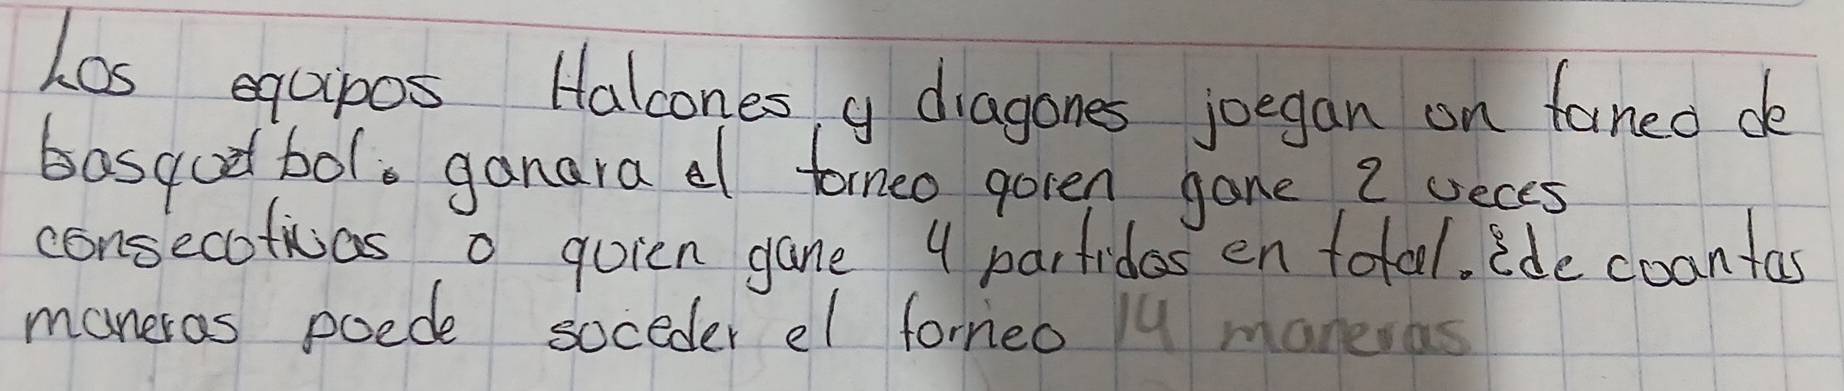 Los equipos Halcones y dragones joegan on torneo de
basquet bol. ganara el torneo qoien gane 2 veces
consecotivas o quien gane 4 partidos en total. ¿de coantas
maneras poede soceder el torneo 14 maneras